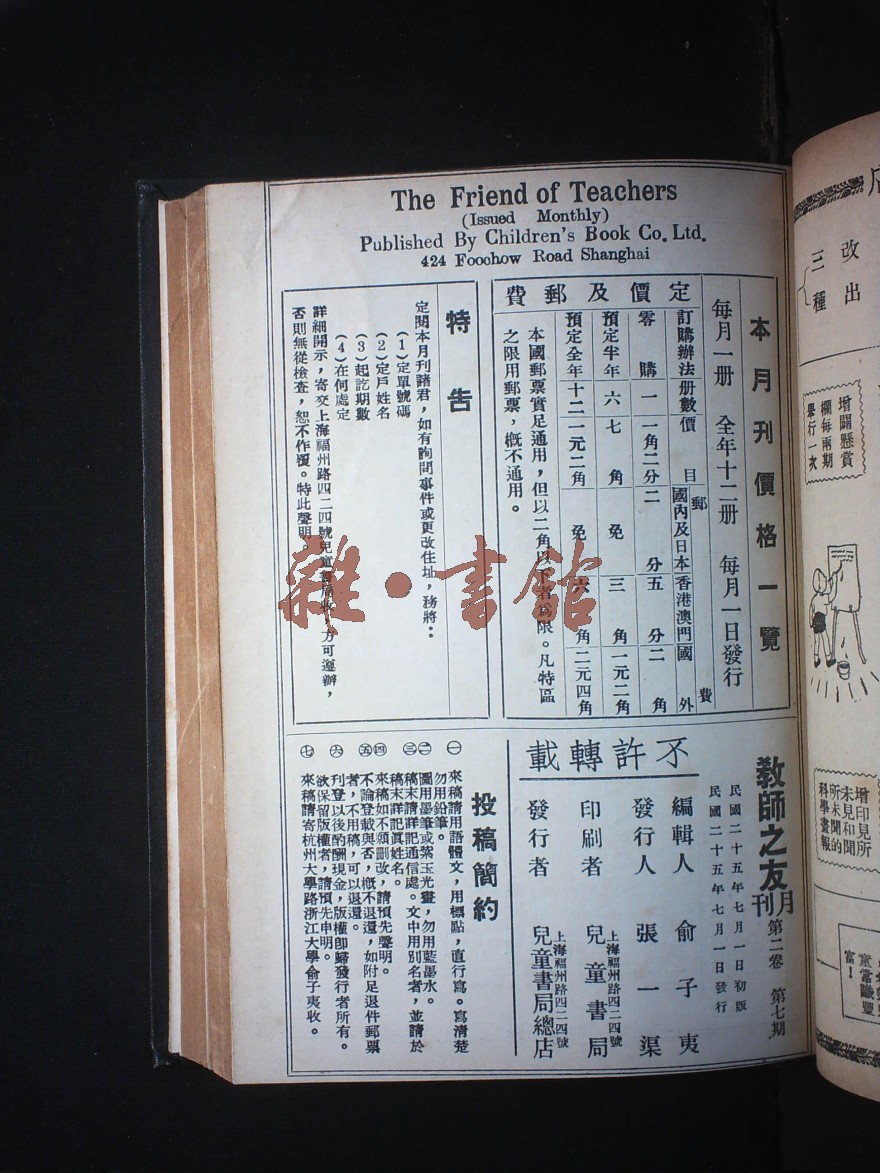 The Friend of Teachers
(Issued Monthly)
Published By Children's Book Co. Ltd.
424 Foochow Road Shanghai
本月刊價格一覽
每月一册 全年十二册 每月一日發行
定價及郵費
訂購辦法 册數 價目 郵費 國內及日本 香港澳門 國外
零購 一 一角二分 二分 五分 二角
預定半年 六 七角 免 三角 一元二角
預定全年 十二 一元二角 免 六角 二元四角
本國郵票實足通用,但以二角以下者爲限。凡特區
之限用郵票,槪不通用。
特告
定閱本月刊諸君,如有詢問事件或更改住址,務將:
(1)定單號碼
(2)定戶姓名
(3)起訖期數
(4)在何處定
詳細開示,寄交上海福州路四二四號兒童書局 方可遵辦,
否則無從檢查,恕不作覆。特此聲明。
敎師之友月刊 第二卷 第七期
民國二十五年七月一日初版
民國二十五年七月一日發行
不許轉載
編輯人 俞子夷
發行人 張一渠
印刷者 上海福州路四二四號 兒童書局
發行者 上海福州路四二四號 兒童書局總店
投稿簡約
㊀來稿請用語體文,用標點,直行寫。寫清楚
勿用鉛筆。
㊁圖用墨筆或紫玉光畫,勿用藍墨水。
㊂稿末請詳記通信處。文中用別名者,並請於
稿末詳記眞姓名。
㊃來稿如不願刪改,請預先聲明。
㊄不論登載與否,槪不退還,如附足退件郵票
者,不用稿,可以退還。
㊅刊登以後酌酬現金,版權卽歸發行者所有。
欲保留版權者,請預先申明。
㊆來稿請寄杭州大學路浙江大學俞子夷收。
雜·書館
改出
三種
增闢懸賞
欄每兩期
舉行一次
增印見所
未見和聞
所未聞的
科學畫報
童常識豐
富!